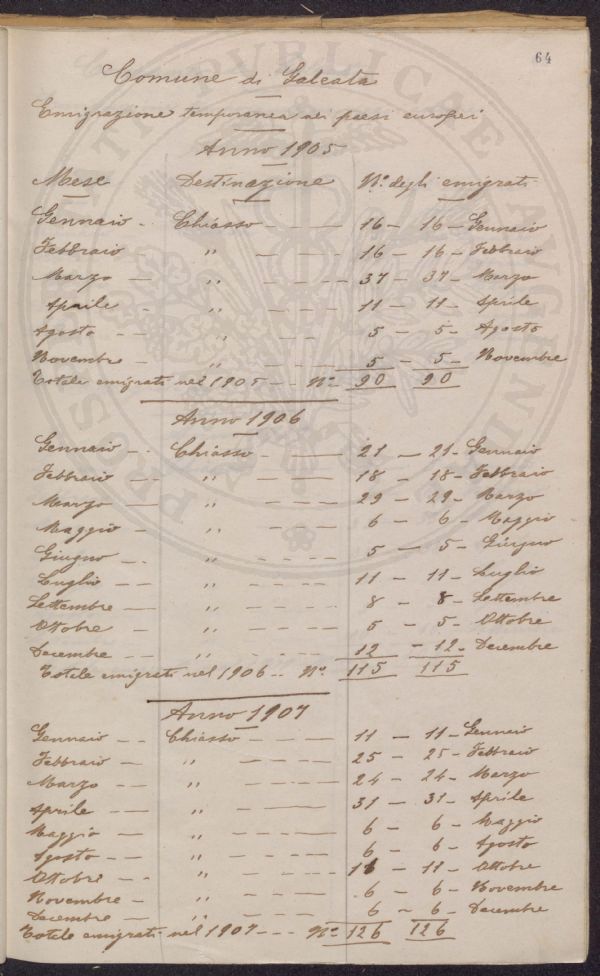 64
Comune di Galeata
Emigrazione temporanea nei paesi europei
Anno 1905
Mese Destinazione N.° degli emigrati
Gennaio - Chiasso - - - 16 - 16 - Gennaio
Febbraio " - - - 16 - 16 - Febbraio
Marzo - " - - - 37 - 37 - Marzo
Aprile - " - - - 11 - 11 - Aprile
Agosto - - " - - - 5 - 5 - Agosto
Novembre - " - - - 5 - 5 - Novembre
Totale emigrati nel 1905 - - N.° 90 90
Anno 1906
Gennaio - - Chiasso - - - 21 - 21 - Gennaio
Febbraio - - " - - - 18 - 18 - Febbraio
Marzo - - " - - - 29 - 29 - Marzo
Maggio - " - - - 6 - 6 - Maggio
Giugno - - " - - - - 5 - 5 - Giugno
Luglio - - " - - - - 11 - 11 - Luglio
Settembre - - " - - - - 8 - 8 - Settembre
Ottobre - - " - - - - 5 - 5 - Ottobre
Decembre - - " - - - - 12 - 12 - Decembre
Totale emigrati nel 1906 - - N.° 115 115
Anno 1907
Gennaio - - Chiasso - - - - 11 - 11 - Gennaio
Febbraio - - " - - - - 25 - 25 - Febbraio
Marzo - - " - - - 24 - 24 - Marzo
Aprile - - " - - - 31 - 31 - Aprile
Maggio - - " - - - - 6 - 6 - Maggio
Agosto - - " - - - - 6 - 6 - Agosto
Ottobre - - " - - - 11 - 11 - Ottobre
Novembre - " - - - - 6 - 6 - Novembre
Decembre - - " - - - - 6 - 6 - Decembre
Totale emigrati nel 1907 - - - N.° 126 126